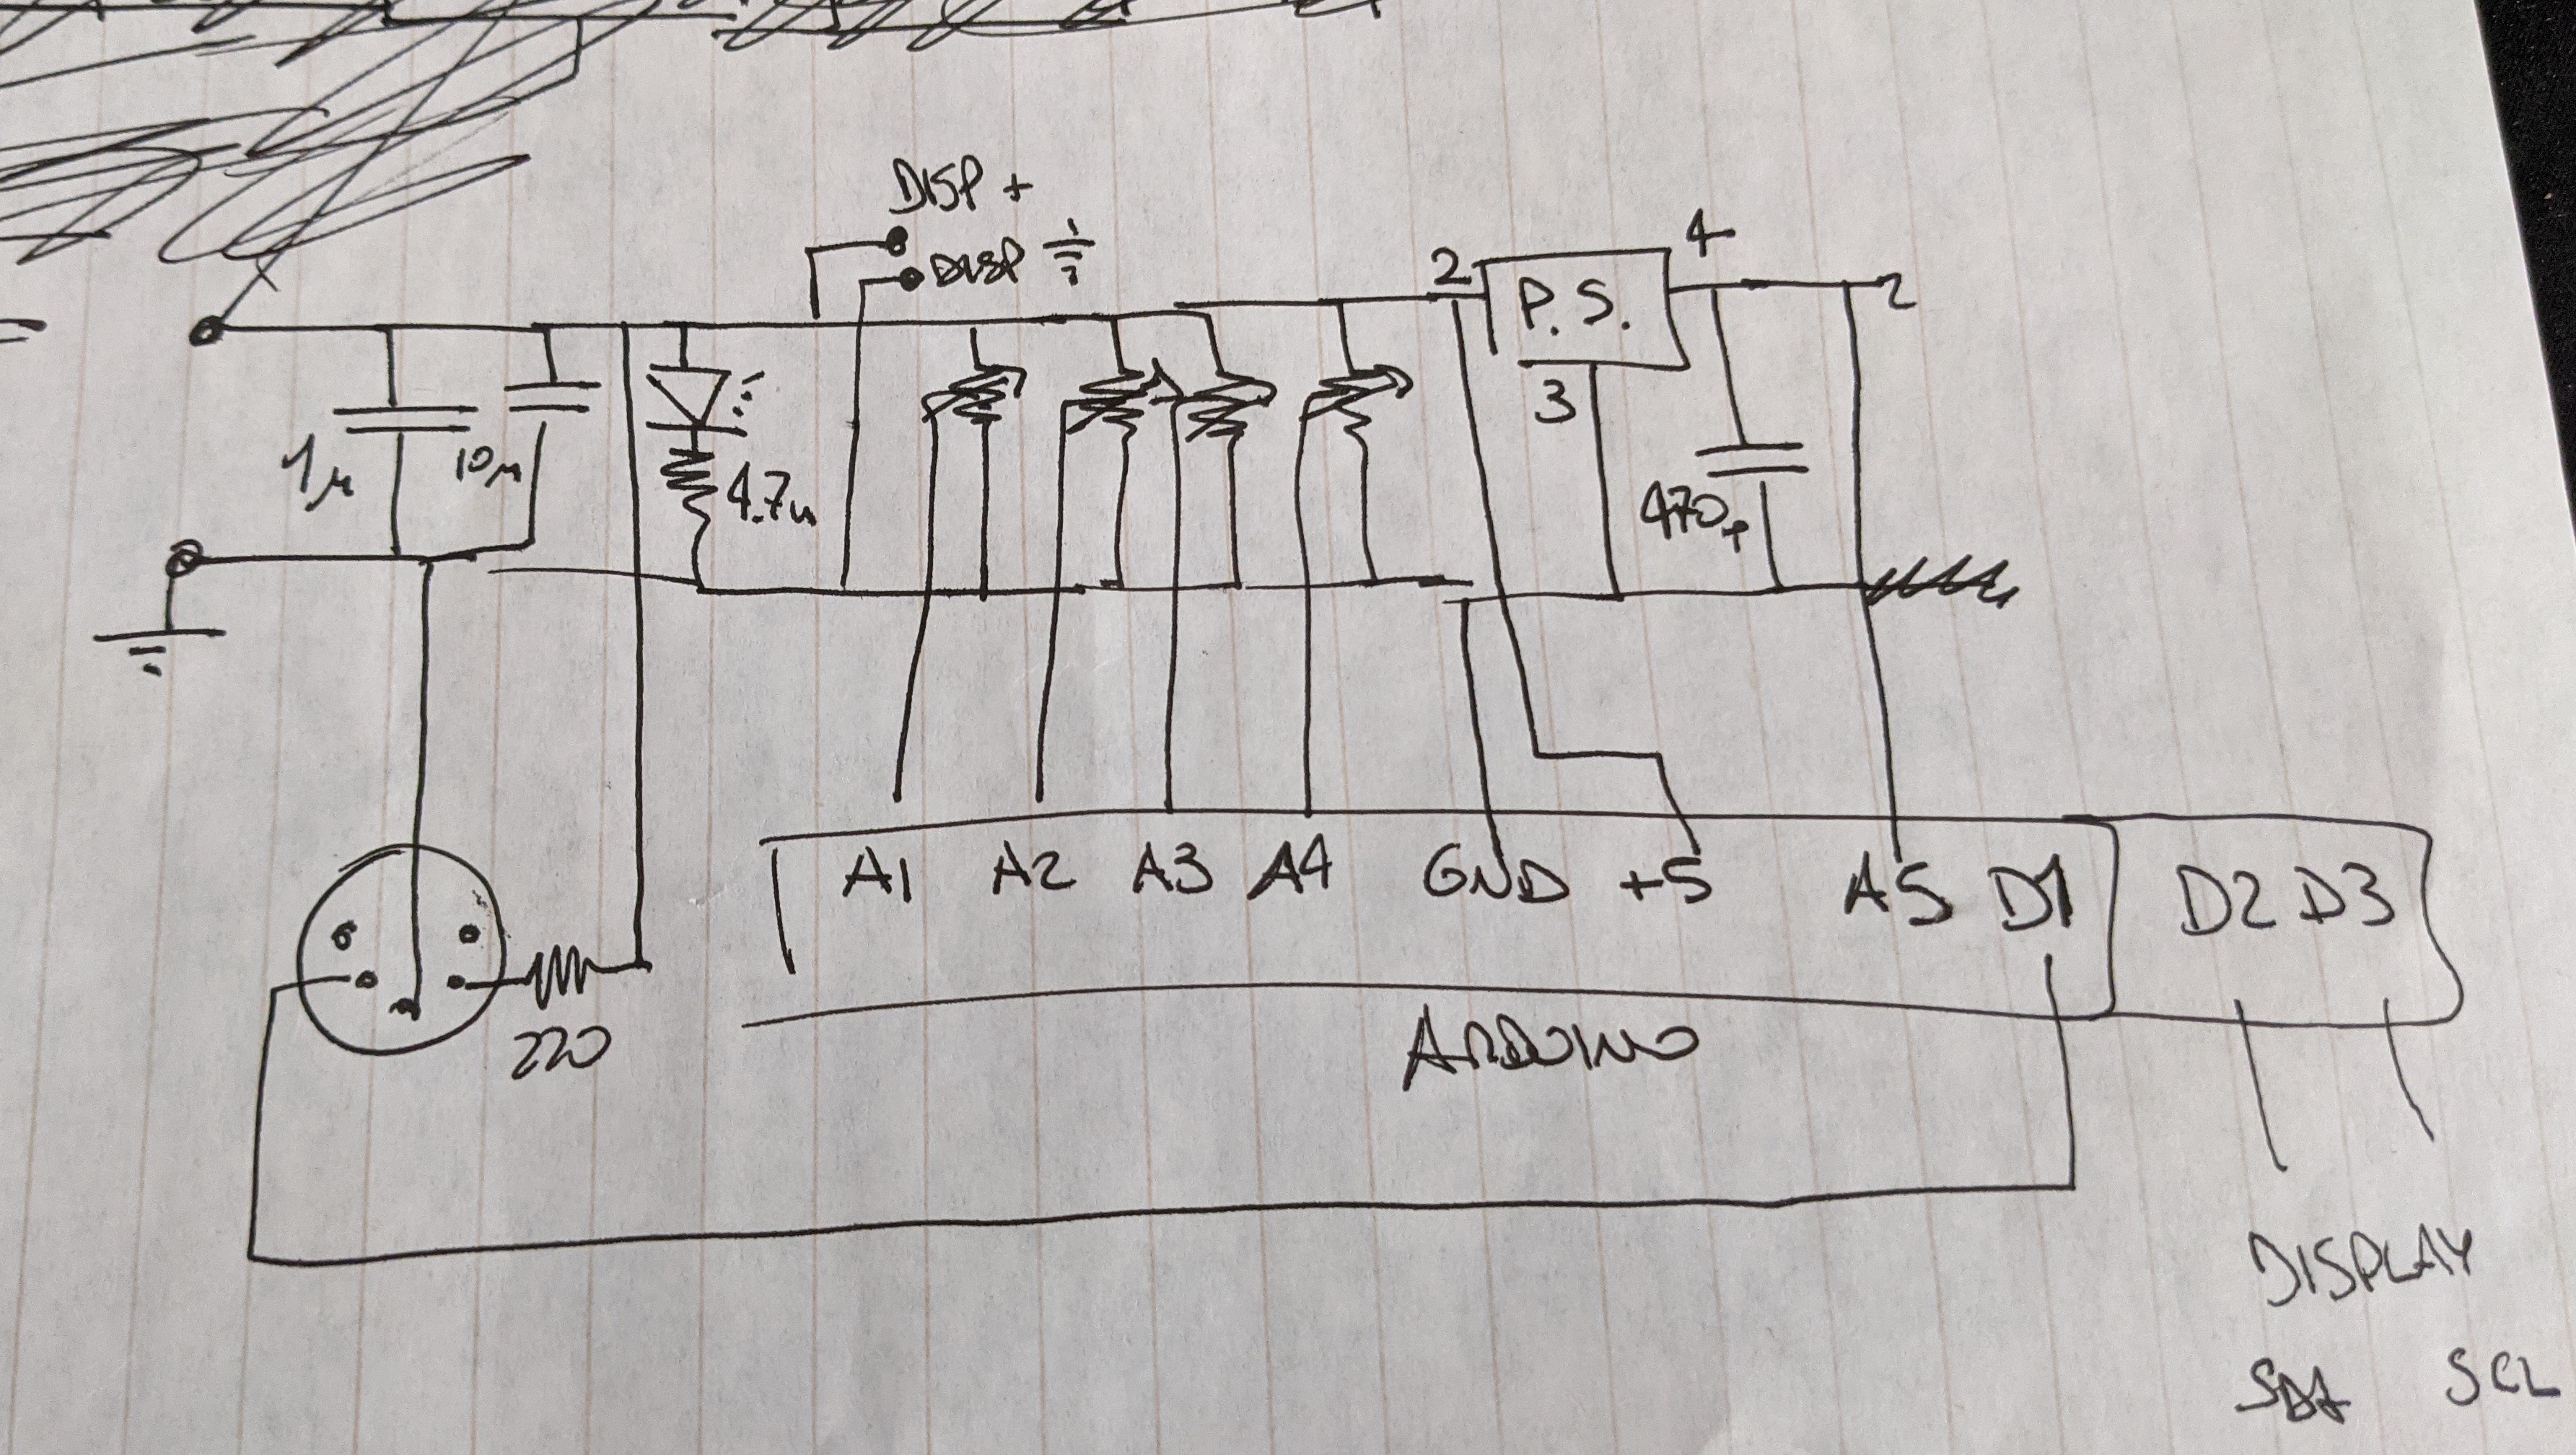 DISP +
DISP
2
4
P.S.
2
3
1μ
10μ
4.7k
470p
A1 A2 A3 A4 GND +5 A5 D1 D2 D3
220
ARDUINO
DISPLAY
SDA SCL